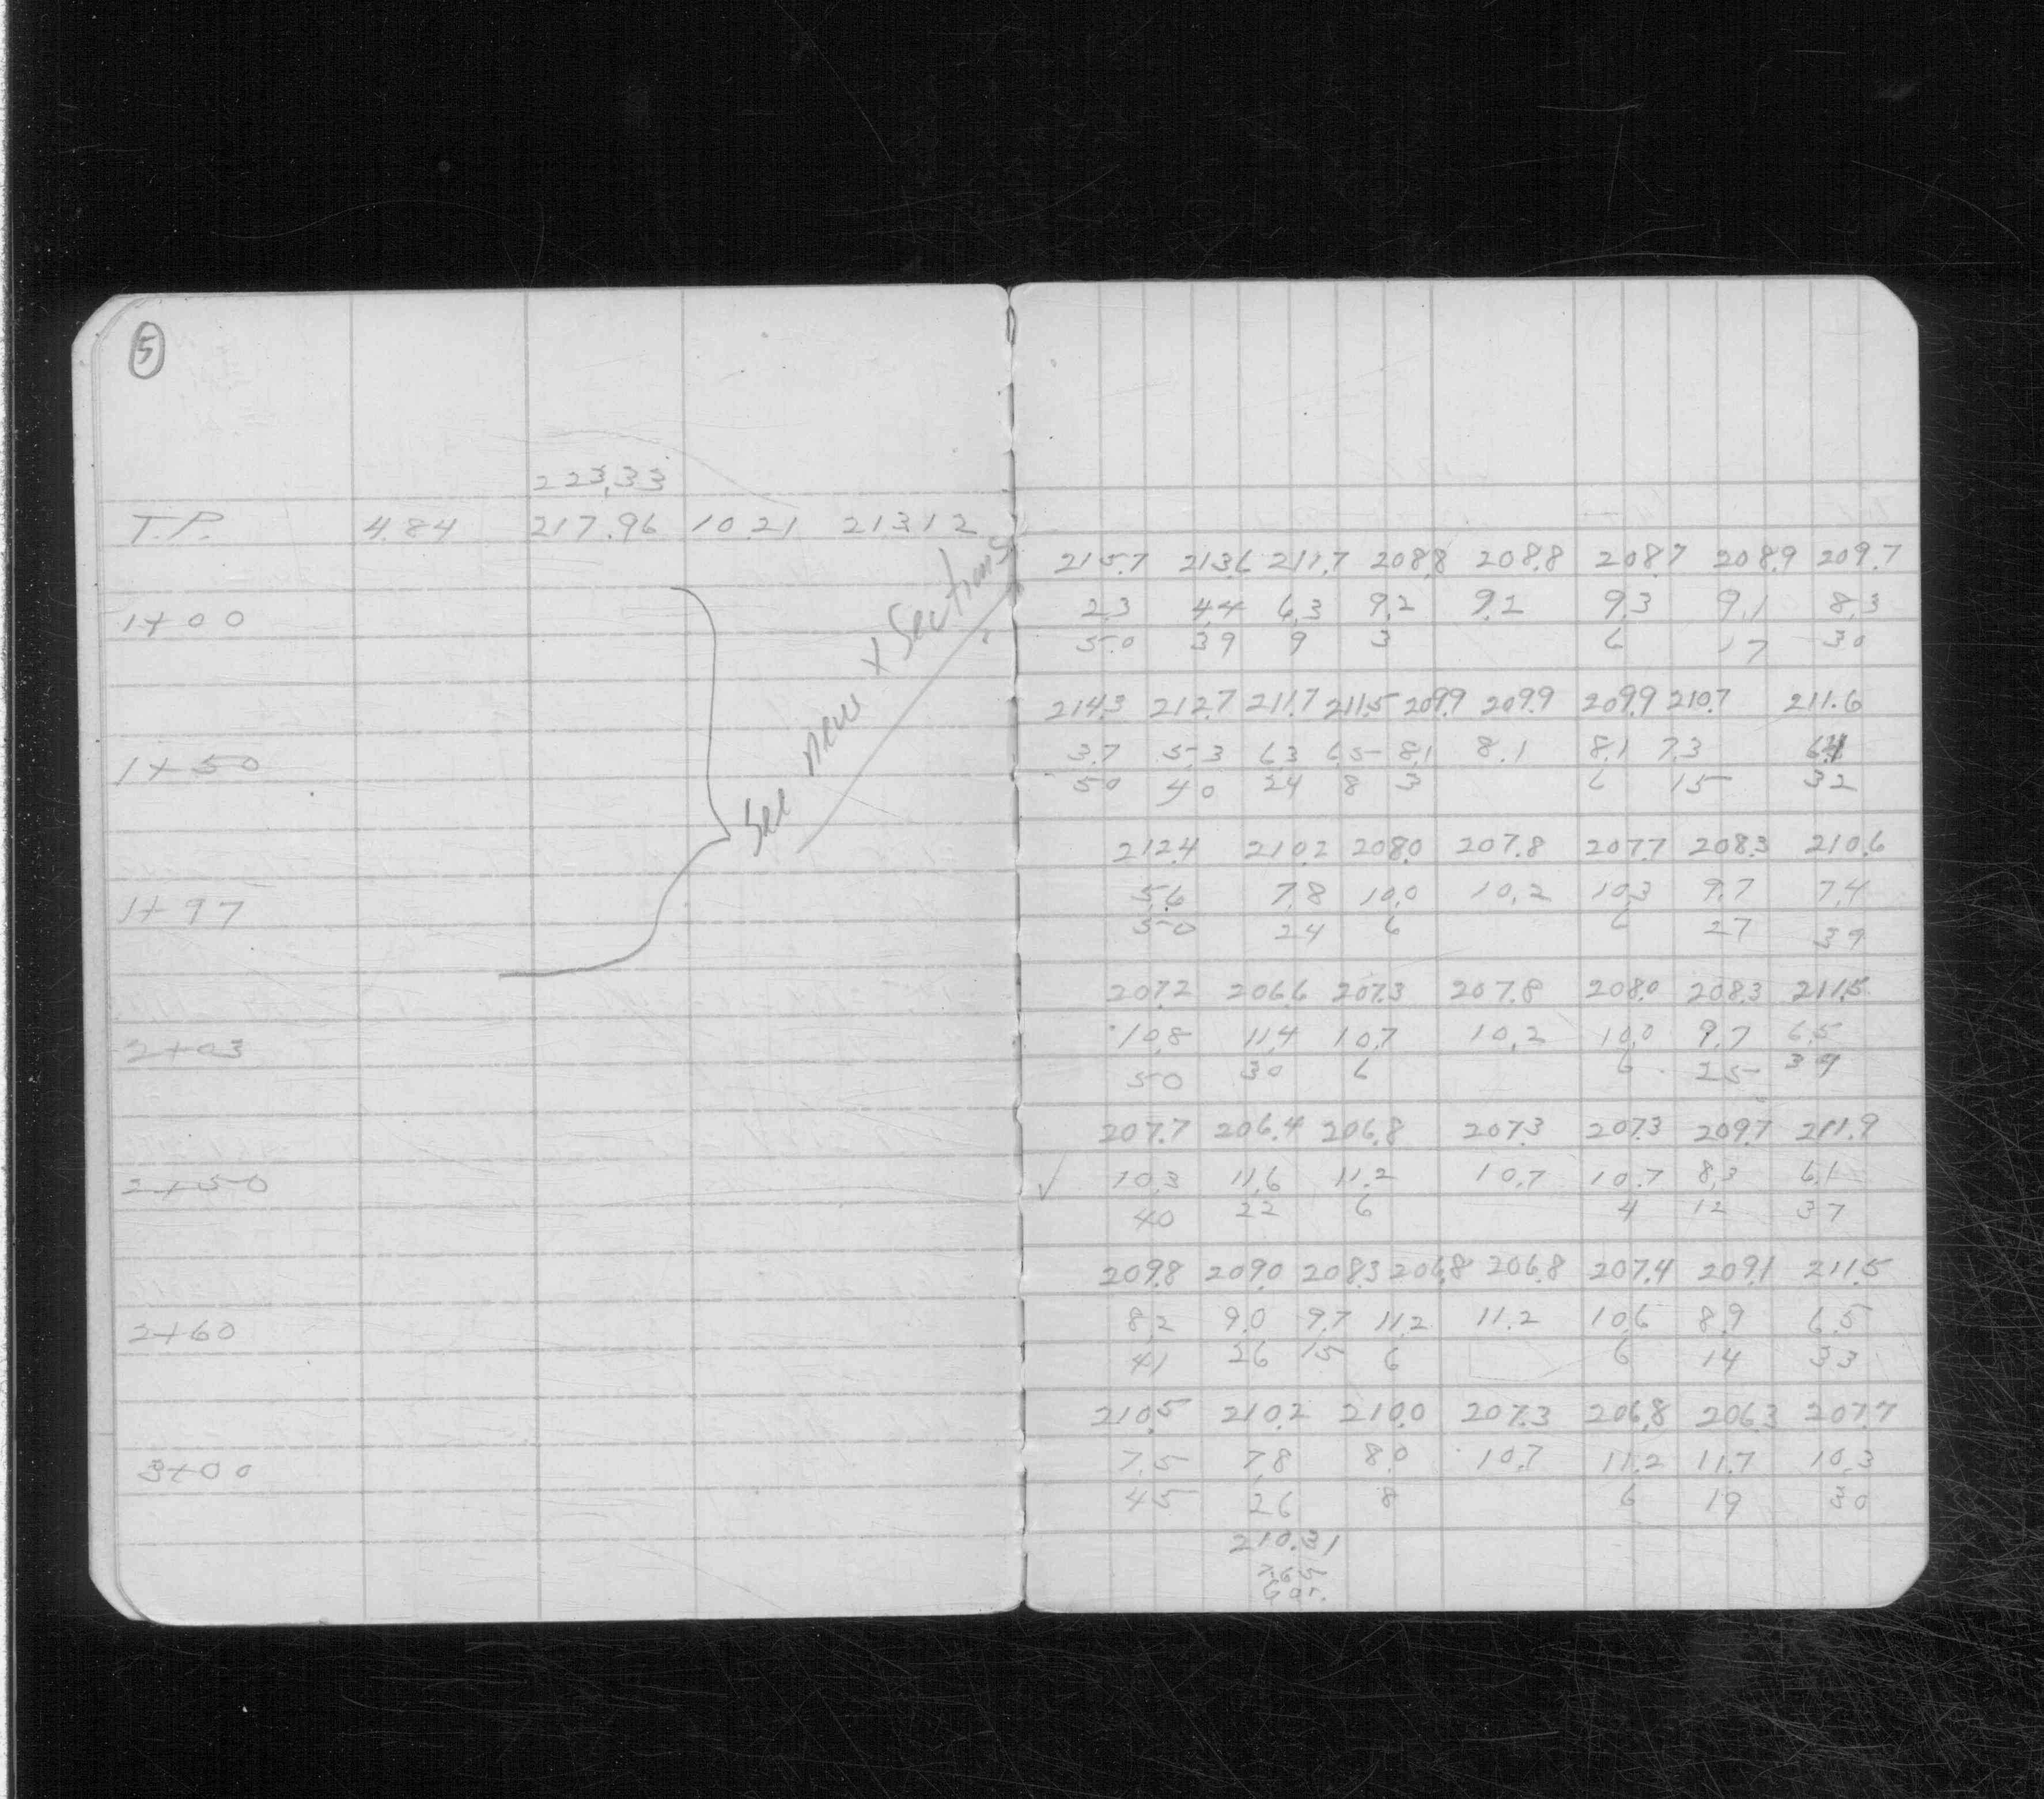 5
223.33
T.P. 4.84 217.96 10.21 213.12
See new x Sections
215.7 213.6 211.7 208.8 208.8 208.7 208.9 209.7
1+00 2.3 4.4 6.3 9.2 9.2 9.3 9.1 8.3
50 39 9 3 6 17 30
214.3 212.7 211.7 211.5 209.9 209.9 209.9 210.7 211.6
1+50 3.7 5.3 6.3 6.5 8.1 8.1 8.1 7.3 6.4
50 40 24 8 3 6 15 32
212.4 210.2 208.0 207.8 207.7 208.3 210.6
1+97 5.6 7.8 10.0 10.2 10.3 9.7 7.4
50 24 6 6 27 39
207.2 206.6 207.3 207.8 208.0 208.3 211.5
2+03 10.8 11.4 10.7 10.2 10.0 9.7 6.5
50 30 6 6 25 39
207.7 206.4 206.8 207.3 207.3 209.7 211.9
2+50 ✓ 10.3 11.6 11.2 10.7 10.7 8.3 6.1
40 22 6 4 12 37
209.8 209.0 208.3 206.8 206.8 207.4 209.1 211.5
2+60 8.2 9.0 9.7 11.2 11.2 10.6 8.9 6.5
41 26 15 6 6 14 33
210.5 210.2 210.0 207.3 206.8 206.3 207.7
3+00 7.5 7.8 8.0 10.7 11.2 11.7 10.3
45 26 8 6 19 30
210.31
Gar.